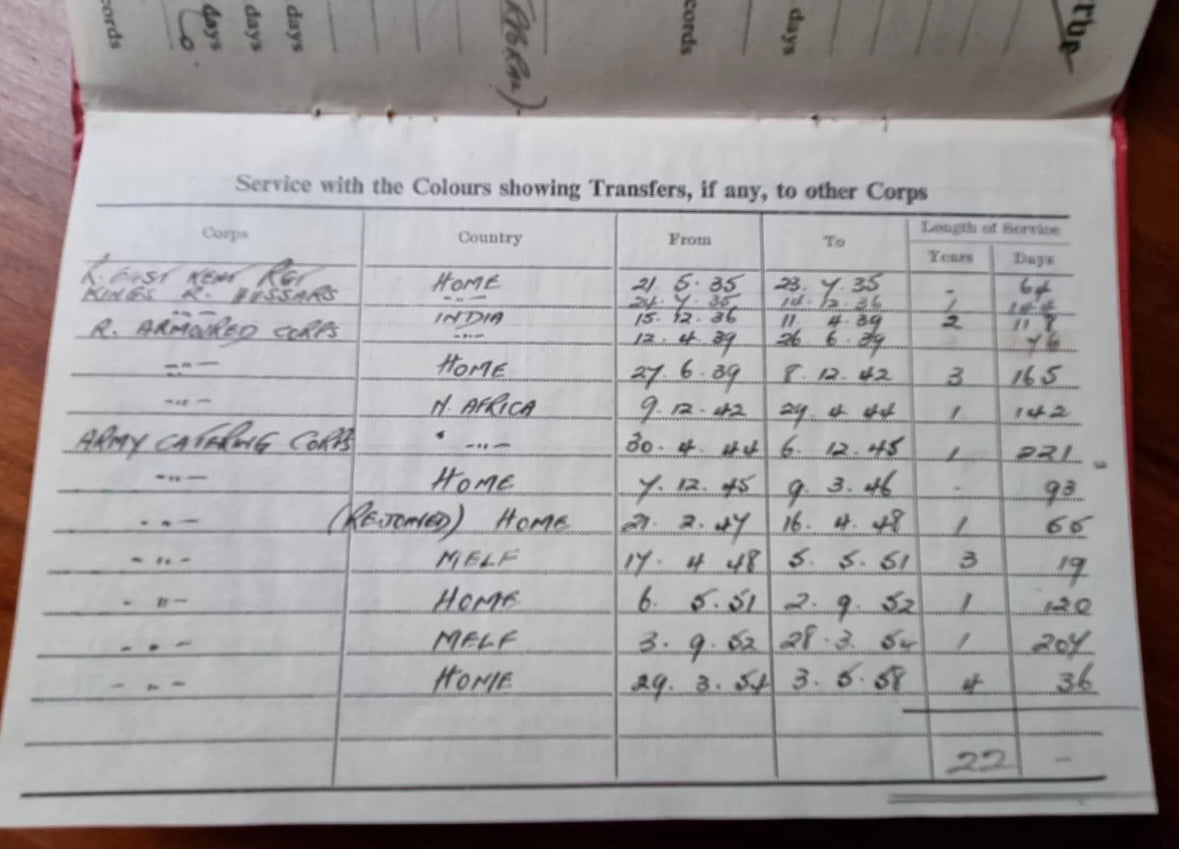 the
cords days days days cords days
Service with the Colours showing Transfers, if any, to other Corps
Corps Country From To Length of Service
Years Days
R. EAST KENT RGT HOME 21. 5. 35 23. 7. 35 - 64
KINGS R. HUSSARS -"- 24. 7. 35 14. 12. 36 1 144
-"- INDIA 15. 12. 36 11. 4. 39 2 118
R. ARMOURED CORPS -"- 12. 4. 39 26 6. 39 76
-"- HOME 27. 6. 39 8. 12. 42 3 165
-"- N. AFRICA 9. 12. 42 29. 4. 44 1 142
ARMY CATERING CORPS -"- 30. 4. 44 6. 12. 45 1 221
-"- HOME 7. 12. 45 9. 3. 46 - 93
-"- (REJOINED) HOME 21. 2. 47 16. 4. 48 1 55
-"- MELF 17. 4 48 5. 5. 51 3 19
-"- HOME 6. 5. 51 2. 9. 52 1 120
-"- MELF 3. 9. 52 28. 3. 54 1 207
-"- HOME 29. 3. 54 3. 5. 58 4 36
22 -